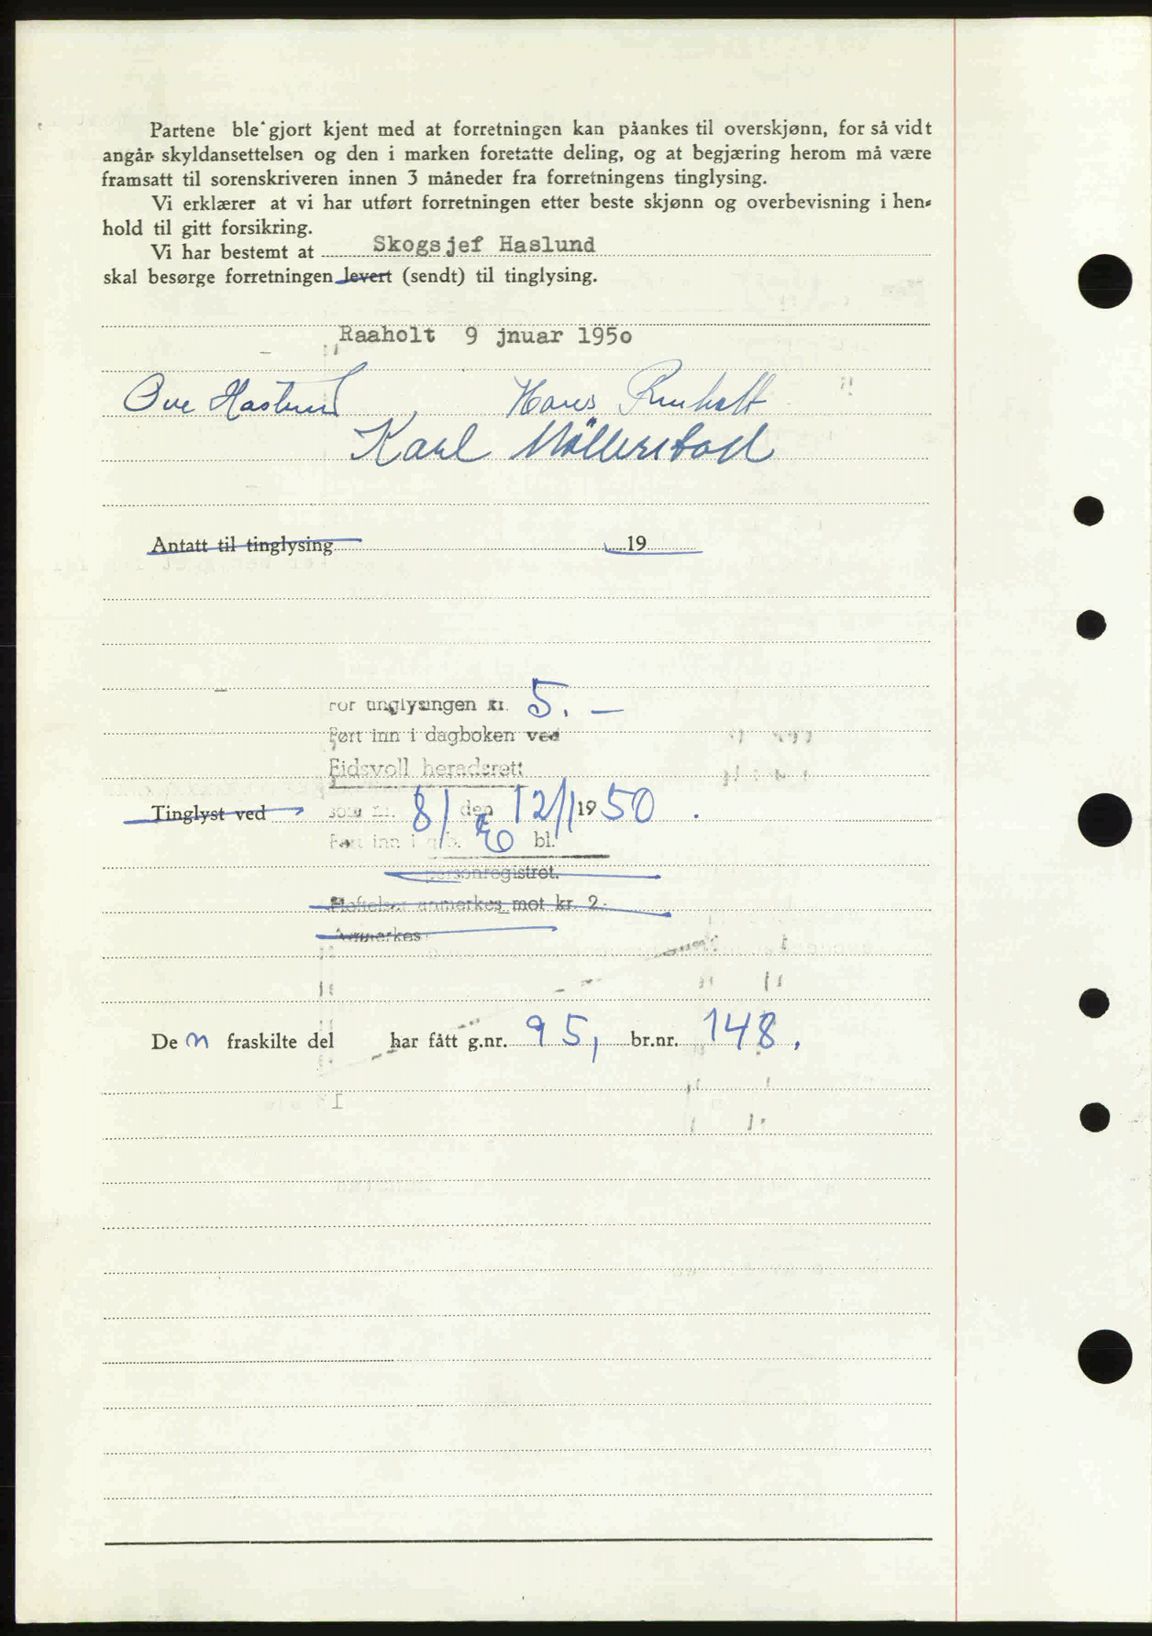 Partene ble gjort kjent med at forretningen kan påankes til overskjønn, for så vidt
angår skyldansettelsen og den i marken foretatte deling, og at begjæring herom må være
framsatt til sorenskriveren innen 3 måneder fra forretningens tinglysing.
Vi erklærer at vi har utført forretningen etter beste skjønn og overbevisning i hen-
hold til gitt forsikring.
Vi har bestemt at Skogsjef Haslund
skal besørge forretningen levert (sendt) til tinglysing.
Raaholt 9 jnuar 1950
Ove Haslund, Hans
Karl Möllerstad
Antatt til tinglysing 19
For tinglysingen kr. 5. —
Ført inn i dagboken ved
Eidsvoll heradsrett
Tinglyst ved som nr. 81 den 12/1 1950.
Ført inn i bl.
personregistret.
Heftelser anmerkes mot kr. 2.
Anmerkes
De n fraskilte del har fått g.nr. 95, br.nr. 148.